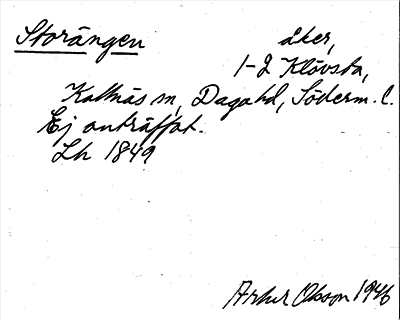 Storängen åker,
1-2 Klövsta,
Kattnäs sn, Daga hd, Söderm. l.
Ej anträffat.
Lh 1849
Arthur Olsson 1946